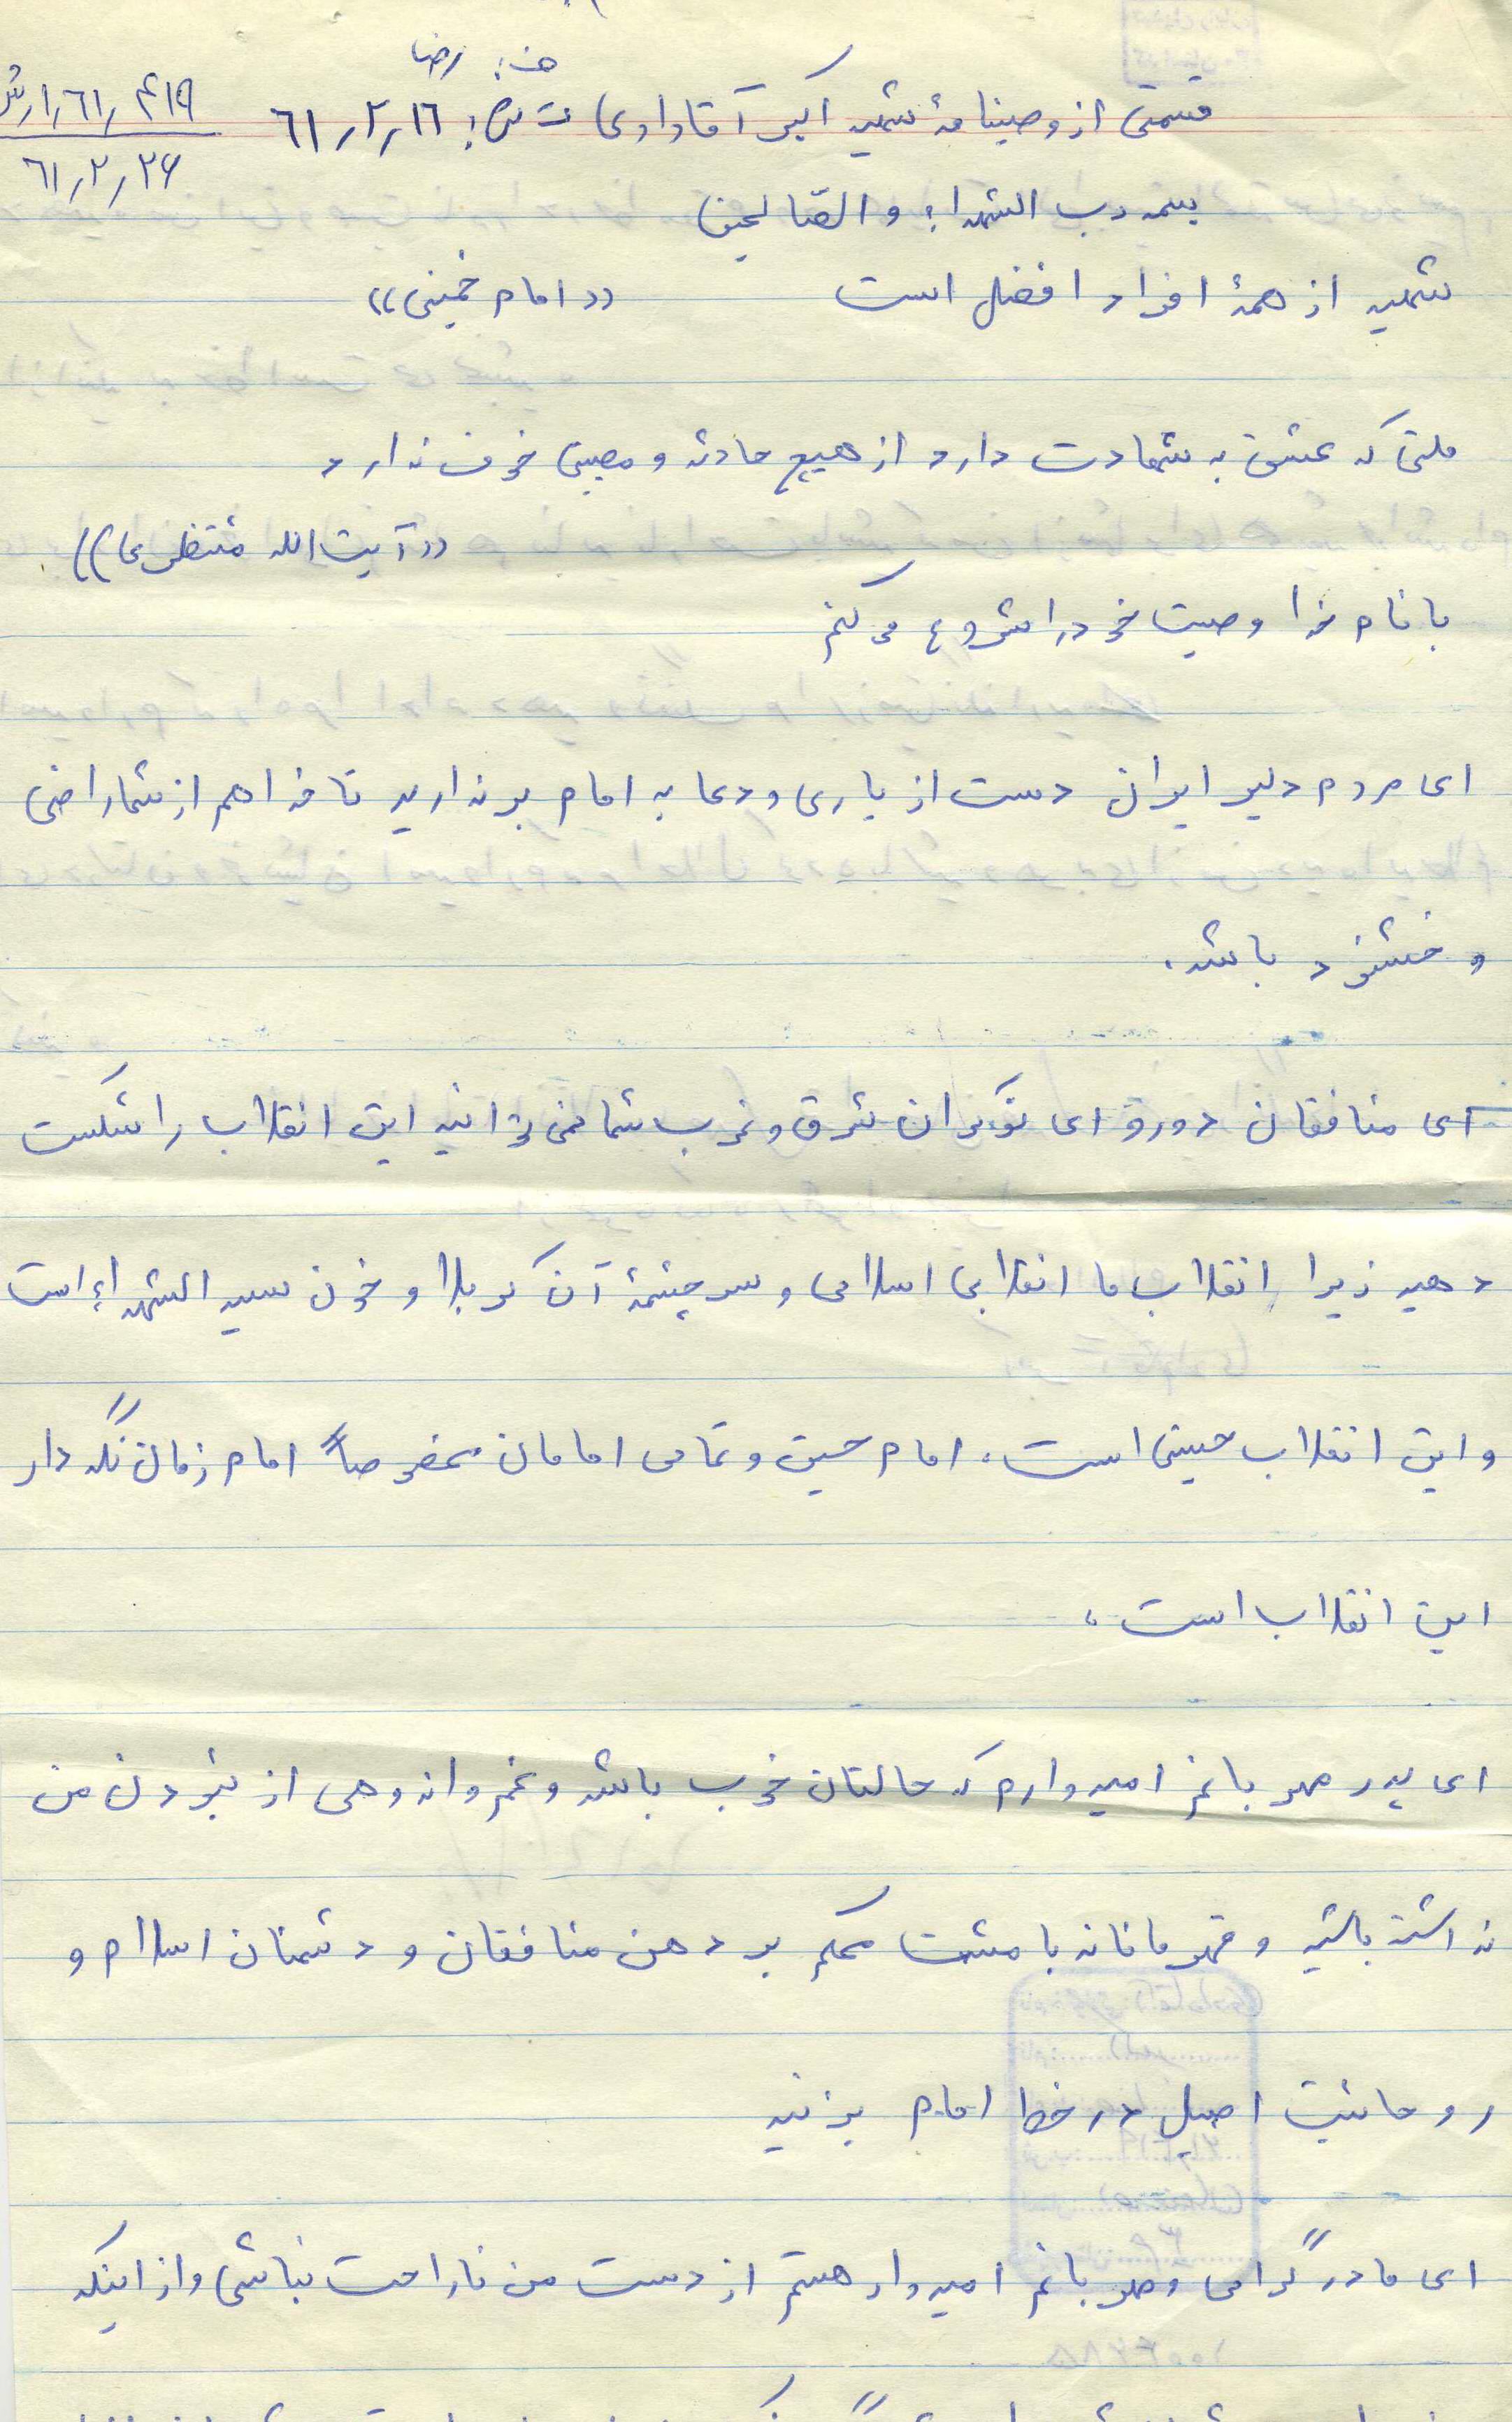 ف: رضا
قسمتی از وصیتنامهٔ شهید اکبر آقادادی ت ش: ۶۱٫۲٫۱۶
۴۱۹٫۶۱٫۱٫ش
۶۱٫۲٫۲۶
بسمه رب الشهداء و الصّالحین
شهید از همهٔ افراد افضل است ((امام خمینی))
ملتی که عشق به شهادت دارد از هیچ حادثه و مصیبتی خوف ندارد
((آیت‌الله منتظری))
با نام خدا وصیت خود را شروع می‌کنم
ای مردم دلیر ایران دست از یاری و دعا به امام برندارید تا خدا هم از شما راضی
و خشنود باشد.
ای منافقان دورو ای نوکران شرق و غرب شما نمی‌توانید این انقلاب را شکست
دهید زیرا انقلاب ما انقلابی اسلامی و سرچشمهٔ آن کربلا و خون سید الشهداء است
و این انقلاب حسینی است. امام حسین و تمامی امامان مخصوصاً امام زمان نگه دار
این انقلاب است.
ای پدر مهربانم امیدوارم که حالتان خوب باشد و غم و اندوهی از نبودن من
نداشته باشید و قهرمانانه با مشت محکم بر دهن منافقان و دشمنان اسلام و
روحانیت اصیل در خط امام بزنید
ای مادر گرامی و مهربانم امیدوار هستم از دست من ناراحت نباشی و از اینکه